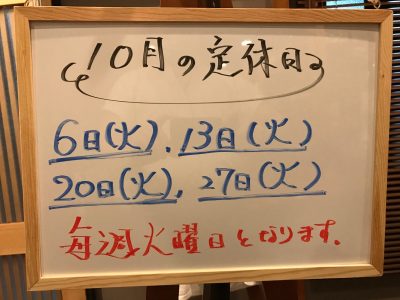 10月の定休日
6日(火)、13日(火)
20日(火)、27日(火)
毎週火曜日となります。